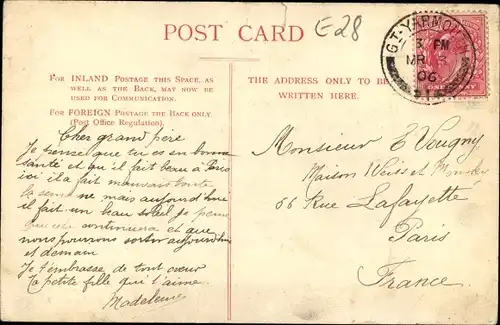 POST CARD
E28
GT. YARMOUTH
PM
MR
06
FOR INLAND POSTAGE THIS SPACE, AS
WELL AS THE BACK, MAY NOW BE
USED FOR COMMUNICATION.
FOR FOREIGN POSTAGE THE BACK ONLY.
(Post Office Regulation).
THE ADDRESS ONLY TO BE
WRITTEN HERE.
Cher grand père
Je pense que tu es en bonne
santé et qu'il fait beau à Paris
ici il a fait mauvais toute
la semaine mais aujourd'hui
il fait un beau soleil je pense
que cela continuera et que
nous pourrons sortir aujourd'hui
et demain
Je t'embrasse de tout cœur
Ta petite fille qui t'aime.
Madeleine
Monsieur E Vougny
Maison Weiss et
66 Rue Lafayette
Paris
France.